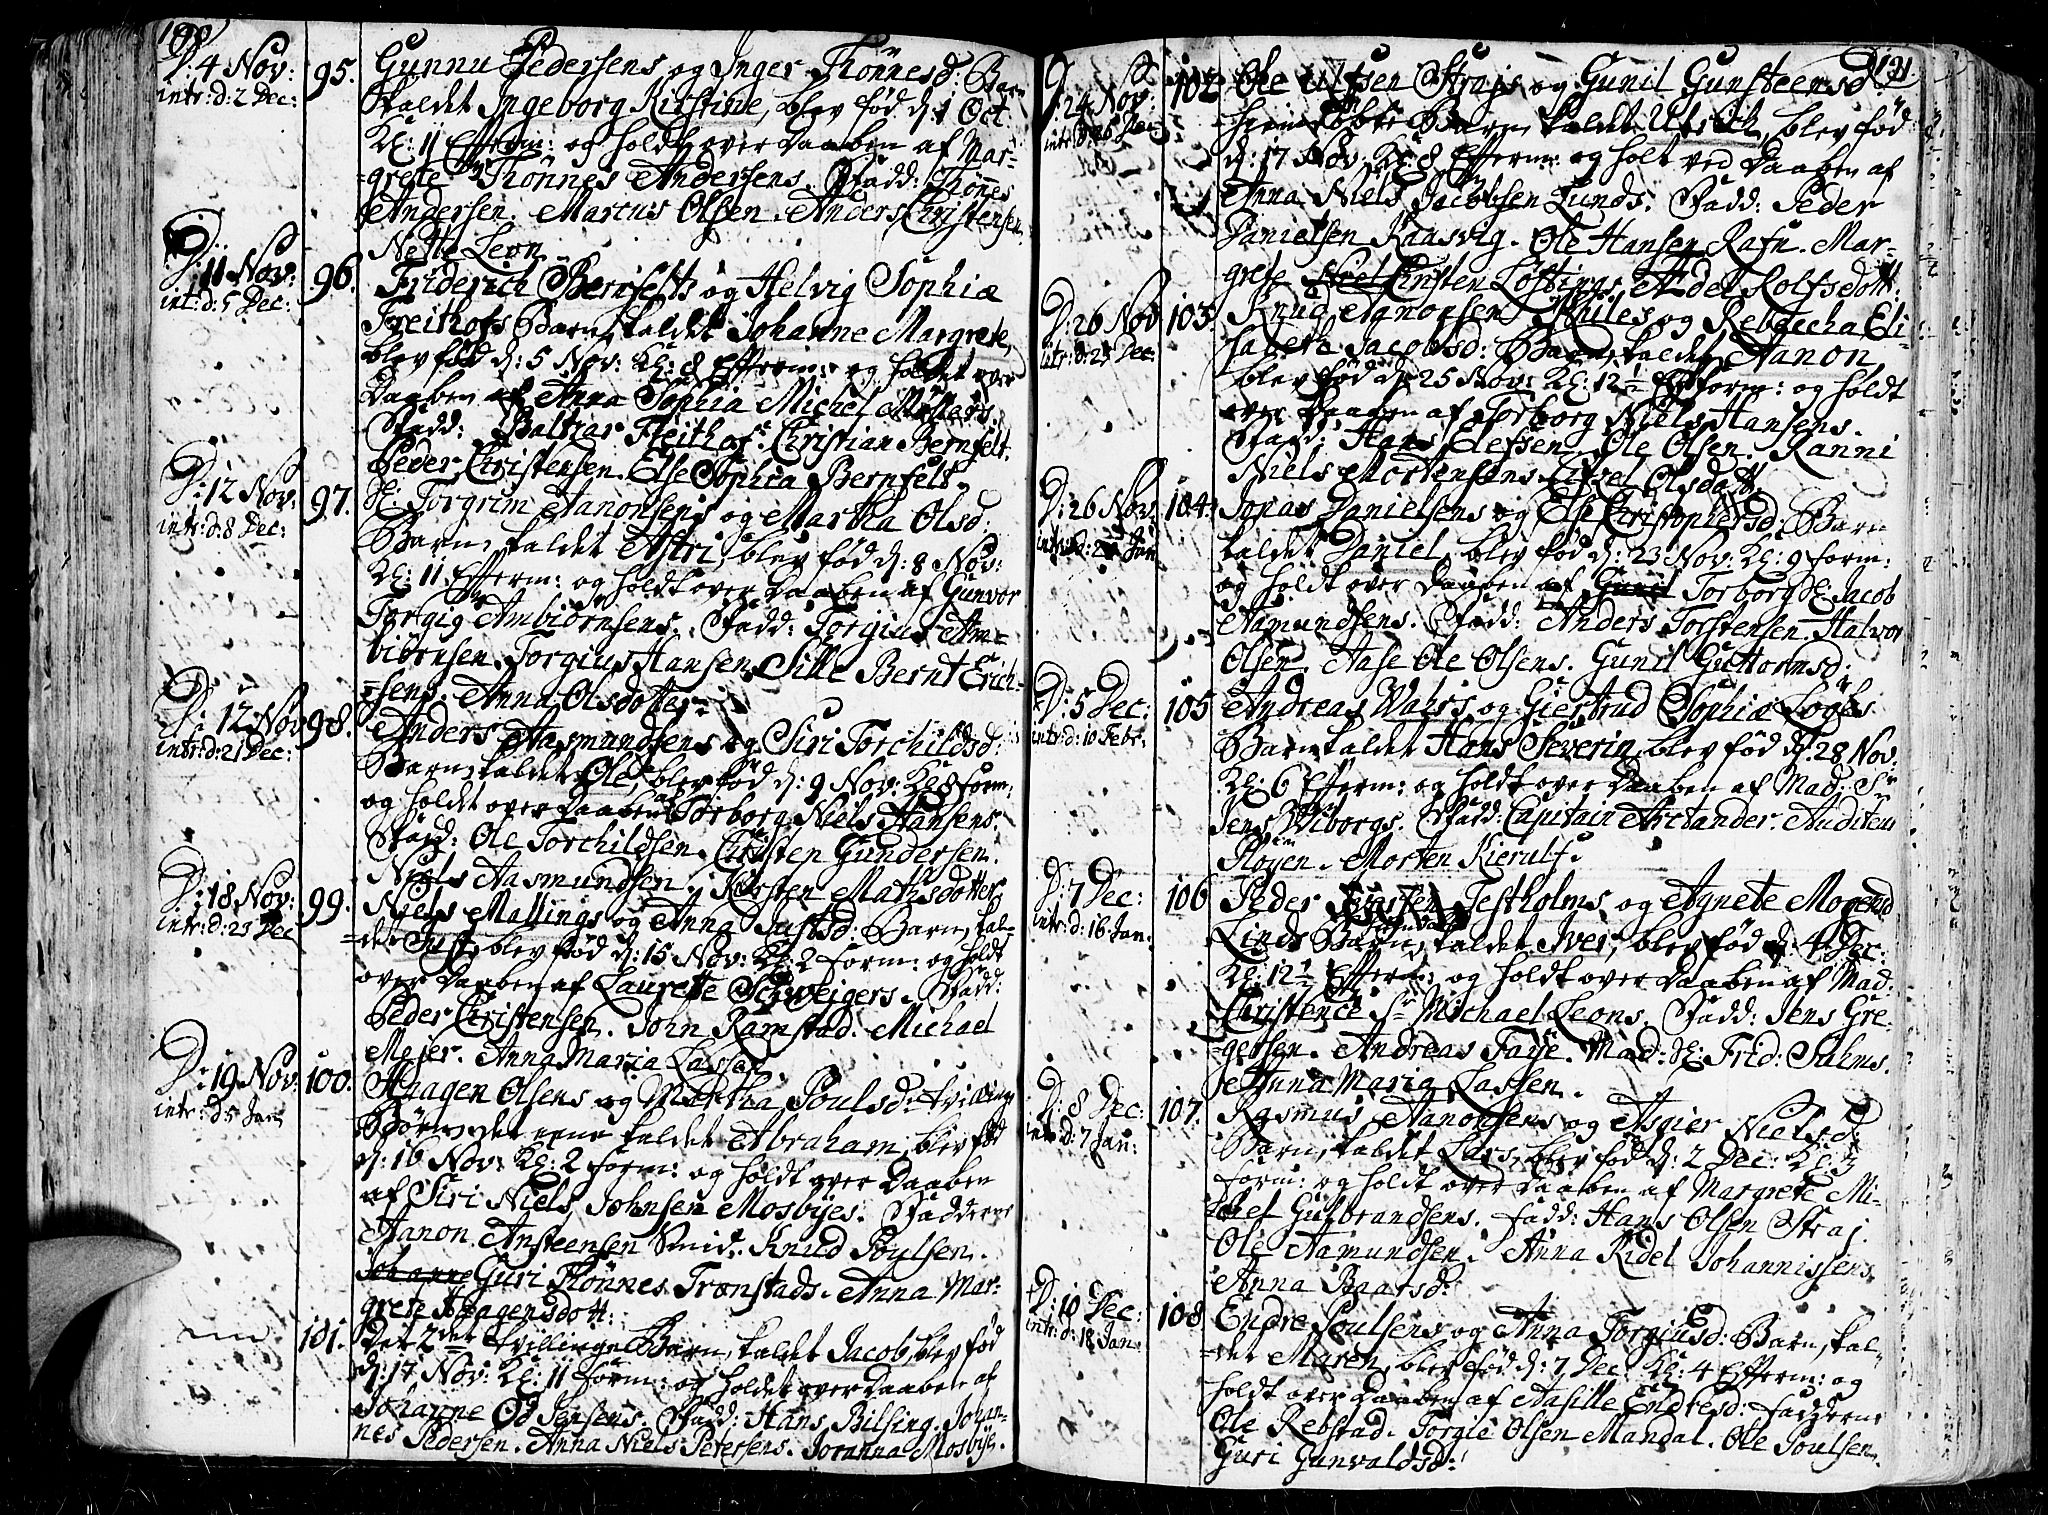 190
D: 4 Nov:
intr: d: 2 Dec:
95.
Gunnu Pedersens og Inger Thönnesd: Barn
kaldet Ingeborg Kirstine, blev föd d: 1 Oct
Kl: 11 Efterm: og holdt over Daaben af Mar=
=grete Thönnes Andersens. Fadd: Thönnes
Andersen. Marcus Olsen. Anders Christensen.
Nelle Leon.
D: 11 Nov:
int: d: 5 Dec:
96.
Friderich Bernfelts og Helvig Sophiæ
Freithofs Barn, kaldet Johanne Margrete,
blev föd d: 5 Nov: Kl: 8 Efterm: og holdet over
Daaben af Anna Sophia Michel Möllers.
Fadd: Baltzar Freithof. Christian Bernfelt.
Peder Christensen. Else Sophia Bernfelt.
D: 12 Nov:
intr: d: 8 Dec:
97.
Torgrim Aanonsens og Martha Olsd:
Barn, kaldet Astri, blev föd d: 8 Nov:
Kl: 11 Efterm: og holdt over Daaben af Gunvor
Torgiq Ambiörnsens. Fadd: Torgius Am=
biörnsen. Torgius Hansen. Sille Bernt Erich=
=sens. Anna Olsdotter.
D: 12 Nov
intr: d: 21 Dec:
98.
Anders Aasmundsens og Siri Torchildsd:
Barn, kaldet Ole, blev föd d: 9 Nov: Kl: 8 form:
og holdet over Daaben af Torborg Niels Hansens.
Fadd: Ole Torchildsen. Christen Gundersen.
Niels Aasmundsen. Kirsten Mathisdotter
D: 18 Nov:
intr: d: 23 Dec
99.
Niels Mallings og Anna Justsd: Barn, kal=
=det Just, blev föd d: 15 Nov: Kl: 2 form: og holdt
over Daaben af Laurette Schweigers. Fadd:
Peder Christensen. John Ramstad. Michael
Mejer. Anna Maria Lassen.
D: 19 Nov:
intr: d 5 Jan
100.
Haagen Olsens og Martha Poulsd: tvillings
Börn, det eene kaldet Abraham, blev föd
d: 16 Nov: Kl: 2 form: og holdt over Daaben
af Siri Niels Johnsen Mosbyes. Fadderne
Aanon Ansteensen Smid. Knud Poulsen.
Johanne Guri Thönnes Tronstads. Anna Mar=
grete Haagensdott:
101.
Det 2det tvillinge Barn, kaldet Jacob, blev föd
d: 17 Nov: Kl: 11 form: og holdet over Daaben af
Johanne Od Jensens. Fadd: Hans Bilsing. Johan=
nes Pedersen. Anna Niels Petersens. Joranna Mosbye.
191.
D: 24 Nov:
intr: d: 26 Dec
102
Ole Ulfsen Strajs og Gunil Gunsteensd
Barn, kaldet Ulrich, blev föd
d: 17 Nov: Kl: 8 Efterm: og holt ved Daaben af
Anna Niels Jacobsen Lunds. Fadd: Peder
Danielsen Kaasvig. Ole Hansen Rafn. Mar=
grete Christen Löftings. Adel Rolfsdott:
D: 26 Nov
intr: d: 23 Dec:
103
Knud Aanonsen Hiiles og Rebeccha Eli=
sabeth Jacobsd: Barn, kaldet Aanon
blev föd d: 25 Nov: Kl: 12 Efterm: og holdt
over Daaben af Torborg Niels Hansens.
Fadd: Hans Elefsen. Ole Olsen. Ranni
Niels Mortensens. Olsdott
D: 26 Nov:
intr: d: Jan
104.
Jonas Danielsens og Else Christophersd: Barn
kaldet Daniel, blev föd d: 23 Nov: Kl: 9 form:
og holdt over Daaben af Gunil Torborg Jacob
Aamundsens. Fadd: Anders Torstensen. Halvor
Olsen. Aase Ole Olsens. Gunil Guttormsd:
D: 5 Dec:
intr: d: 10 Febr:
105
Andreas Wahrs og Giertrud Sophiæ
Barn kaldet Hans Severin, blev föd d: 28 Nov:
Kl: 6 Efterm: og holdt over Daaben af Mad: Sr
Jens Wiborgs. Fadd: Capitain Arctander. Auditeur
Floyen. Morten Kierulf.
D: 7 Dec:
intr: d: 16 Jan:
106
Peder Testholms, og Agnete Mogensd
Linds Barn, kaldet Iver, blev föd d: 4 Dec:
Kl: 12 Efterm: og holdt over Daaben af Mad:
Christence Sr Michael Leons. Fadd: Jens Gre=
=gersen. Andreas Faye. Mad: Frid: Salms.
Anna Maria Lassen.
D: 8 Dec:
intr: d: 7 Jan:
107.
Rasmus Aanonsens og Asgier Nielsd:
Barn, kaldet Lars, blev föd d: 2 Dec: Kl: 3
form: og holdt over Daaben af Margrete Mi=
chel Gulbrandsens. Fadd: Hans Olsen Straj.
Ole Aamundsen. Anna Ridel Johannissens
Anna Baarsd:
D: 10 Dec:
intr: d: 18 Jan:
108
Endre Poulsens og Anna Torgiusd: Barn, kal=
=det Maren, blev föd d: 7 Dec: Kl: 4 Efterm: og
holdt over Daaben af Aasille Endresd: Fadderne
Ole Rebstad. Torgie Olsen Mandal. Ole Poulsen.
Guri Gunvaldsd: